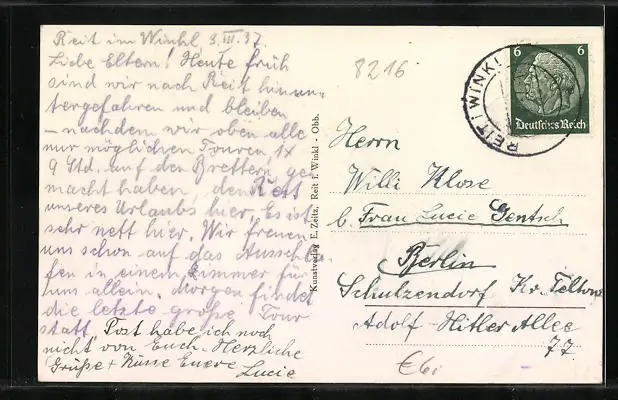 Reit im Winkl 3.III.37.
Liebe Eltern! Heute früh
sind wir nach Reit hinun-
tergefahren und bleiben
– nachdem wir oben alle
nur möglichen Touren, 1x
9 Std. auf den Brettern, ge-
macht haben, den Rest
unseres Urlaubs hier. Es ist
sehr nett hier. Wir freuen
uns schon auf das Ausschla-
fen in einem Zimmer für
uns allein. Morgen findet
die letzte große Tour
statt. Post habe ich noch
nicht von Euch. Herzliche
Grüße + Küsse Eure
Lucie
Kunstverlag E. Zeitz, Reit i. Winkl - Obb.
8216
REIT i WINKL
6 6
Deutsches Reich
Herrn
Willi Klose
b. Frau Lucie Gentsch
Berlin
Schulzendorf Kr. Teltow
Adolf-Hitler Allee
77